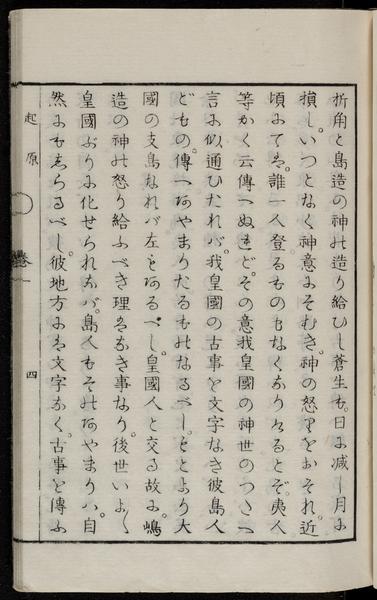 折角と島造の神の造り給ひし蒼生も。日に減し月に
損し。いつとなく神意にそむき。神の怒りをおそれ近
頃にては。誰一人登るものもなくなりけるとぞ。夷人
等かく云傳へぬれど。その意我皇國の神世のつたへ
言に似通ひたれバ。我皇國の古事を文字なき彼島人
どもの。傳へあやまりたるものなるべし。もとより大
國の支島なれバ左もあるべし。皇國人と交る故に。嶋
造の神の怒り給ふべき理はなき事なり。後世いよ〱
皇國ぶりに化せられなバ。島人もそのあやまりハ。自
然にもしらるべし。彼地方には文字なく。古事を傳ふ
起原
四